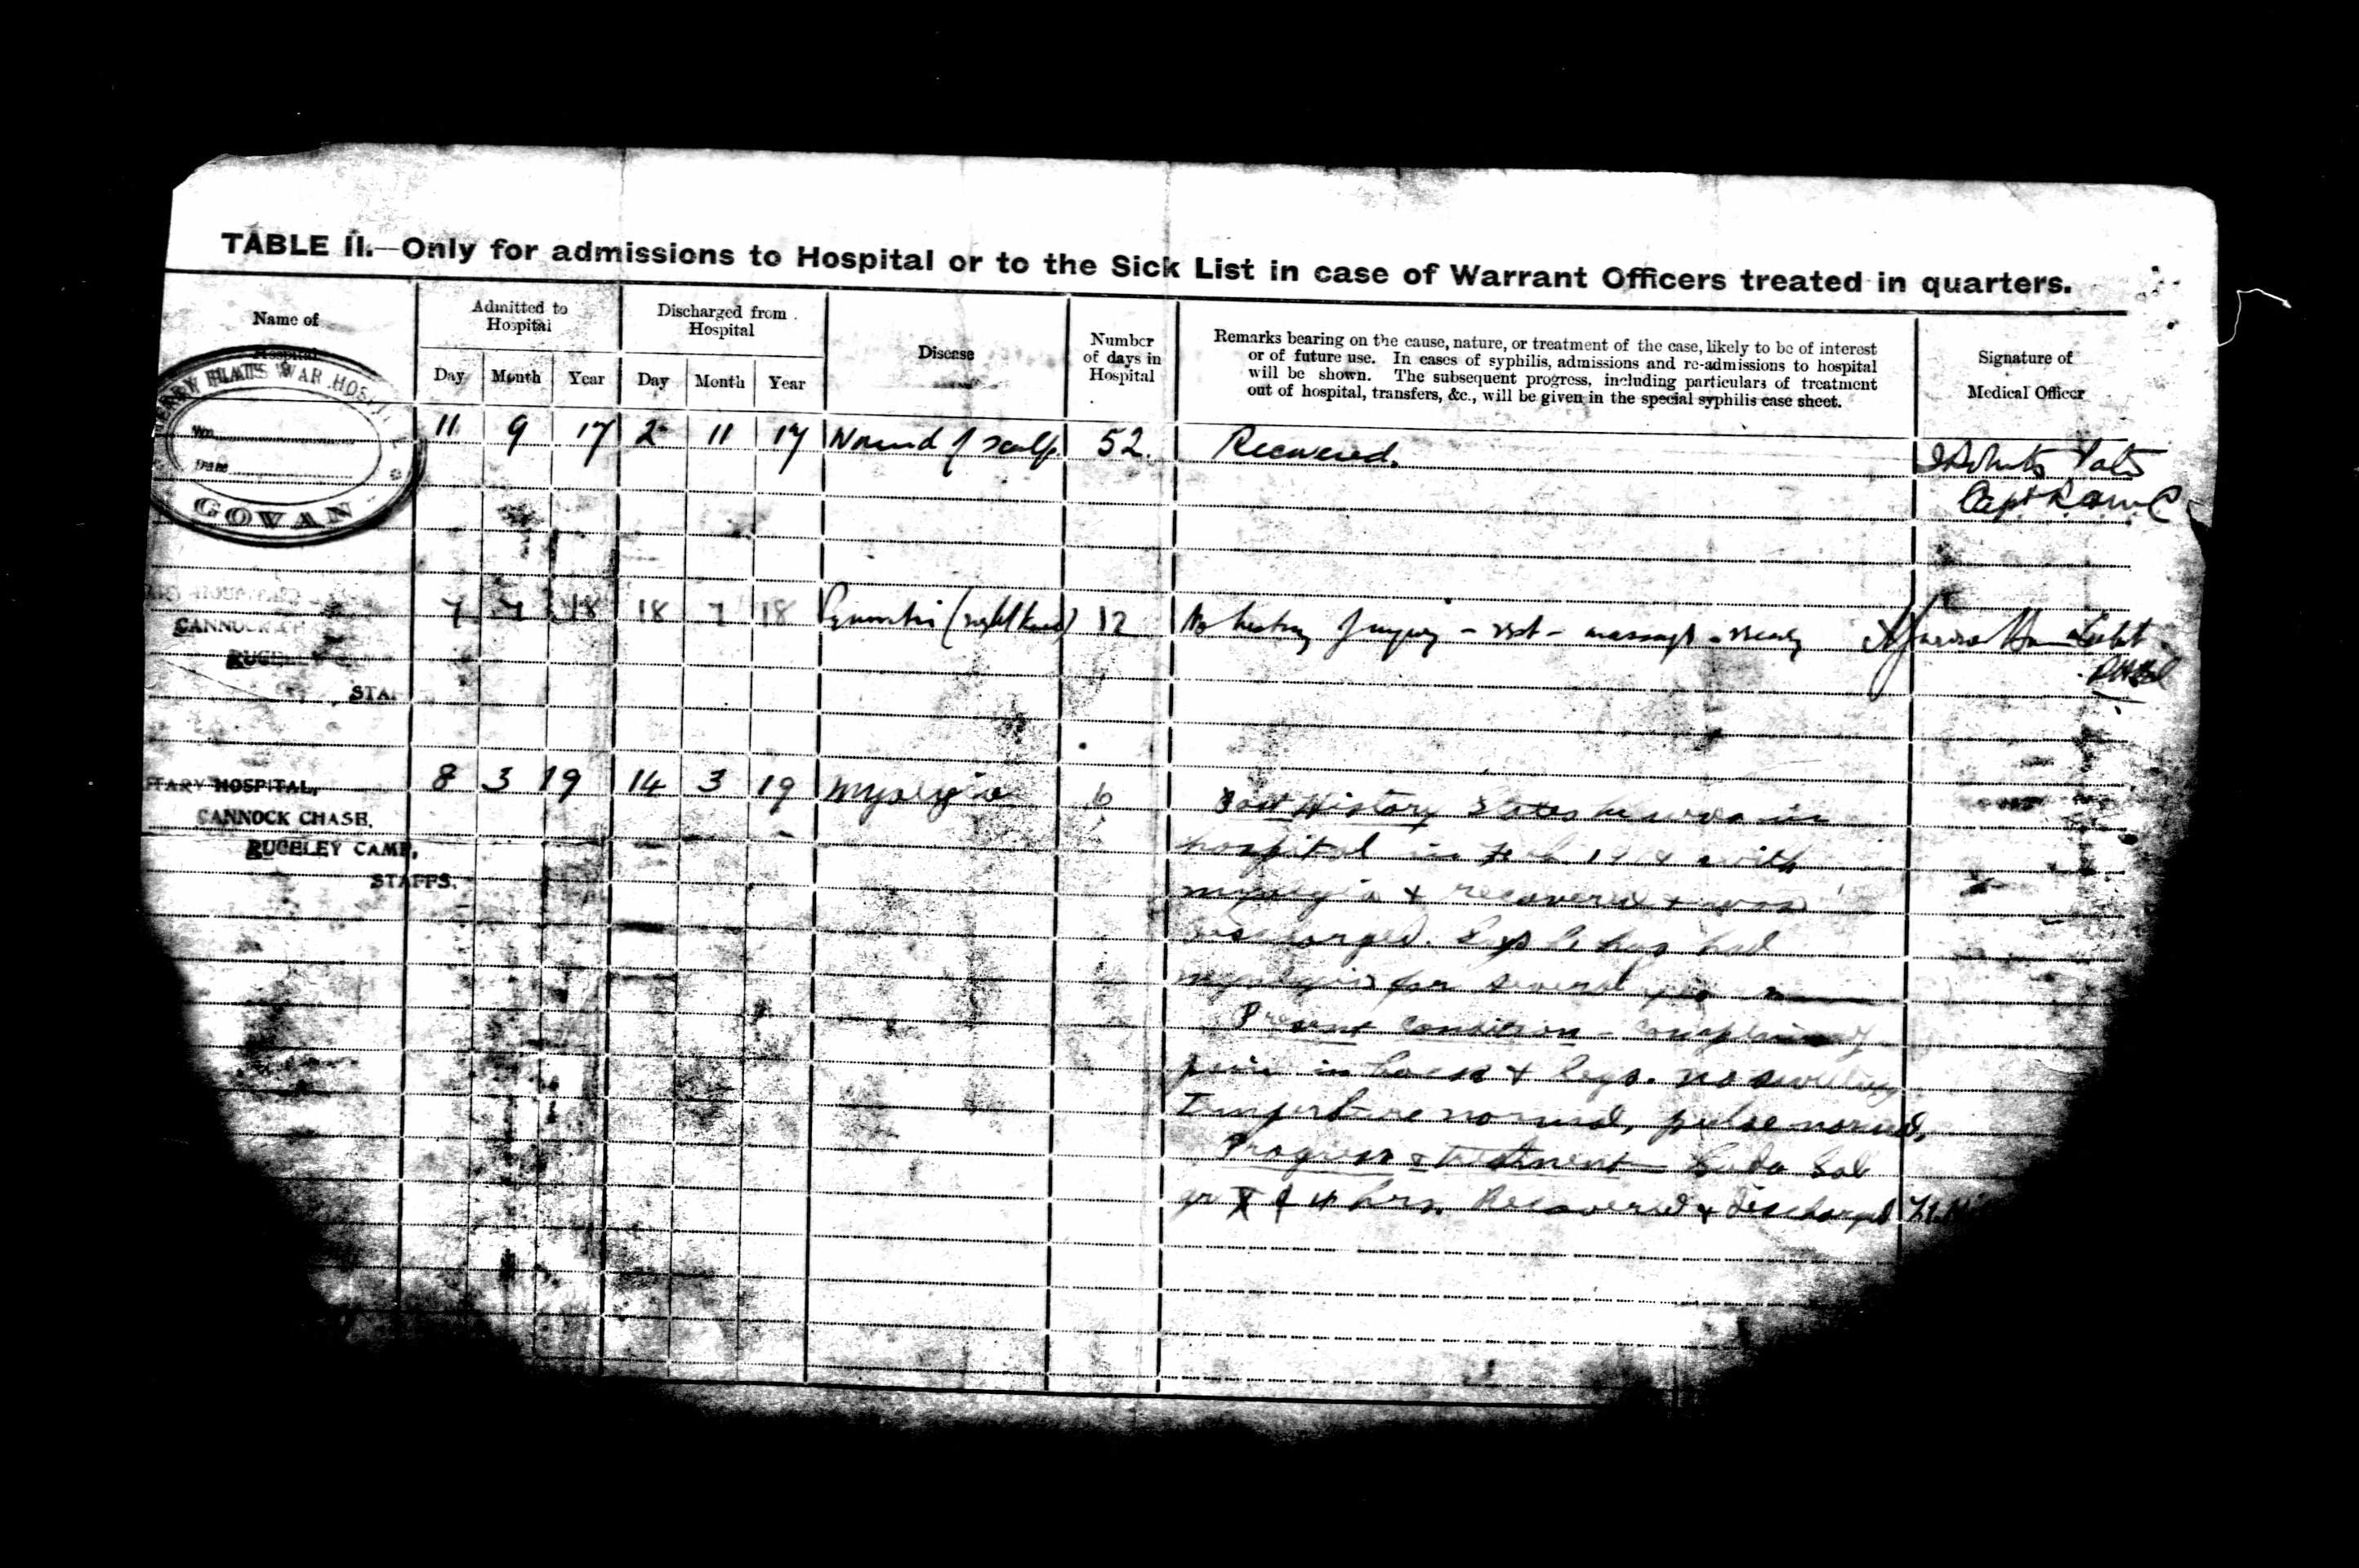 TABLE II.—Only for admissions to Hospital or to the Sick List in case of Warrant Officers treated in quarters.
Name of Hospital
Admitted to Hospital
Discharged from Hospital
Disease
Number of days in Hospital
Remarks bearing on the cause, nature, or treatment of the case, likely to be of interest
or of future use. In cases of syphilis, admissions and re-admissions to hospital
will be shown. The subsequent progress, including particulars of treatment
out of hospital, transfers, &c., will be given in the special syphilis case sheet.
Signature of
Medical Officer
Day Month Year Day Month Year
WAR HOSPITAL
No.
Date
GOVAN
11 9 17 2 11 17 Wound of scalp 52. Recovered.
Capt R.A.M.C
CANNOCK CH
RUGELEY
STA
7 7 18 18 7 18 (right knee) 12 No history of injury - rest - massage -
TARY HOSPITAL,
CANNOCK CHASE,
RUGELEY CAMP,
STAFFS.
8 3 19 14 3 19 Myalgia 6
Past History States he was in
hospital in Feb 191 with
myalgia & recovered & was
discharged. Says he has had
myalgia for several
Present Condition - complains of
pain in back & legs. No swelling
Temperature normal, pulse normal,
Progress & treatment Soda Sal
gr X 4 hrs. Recovered & discharged